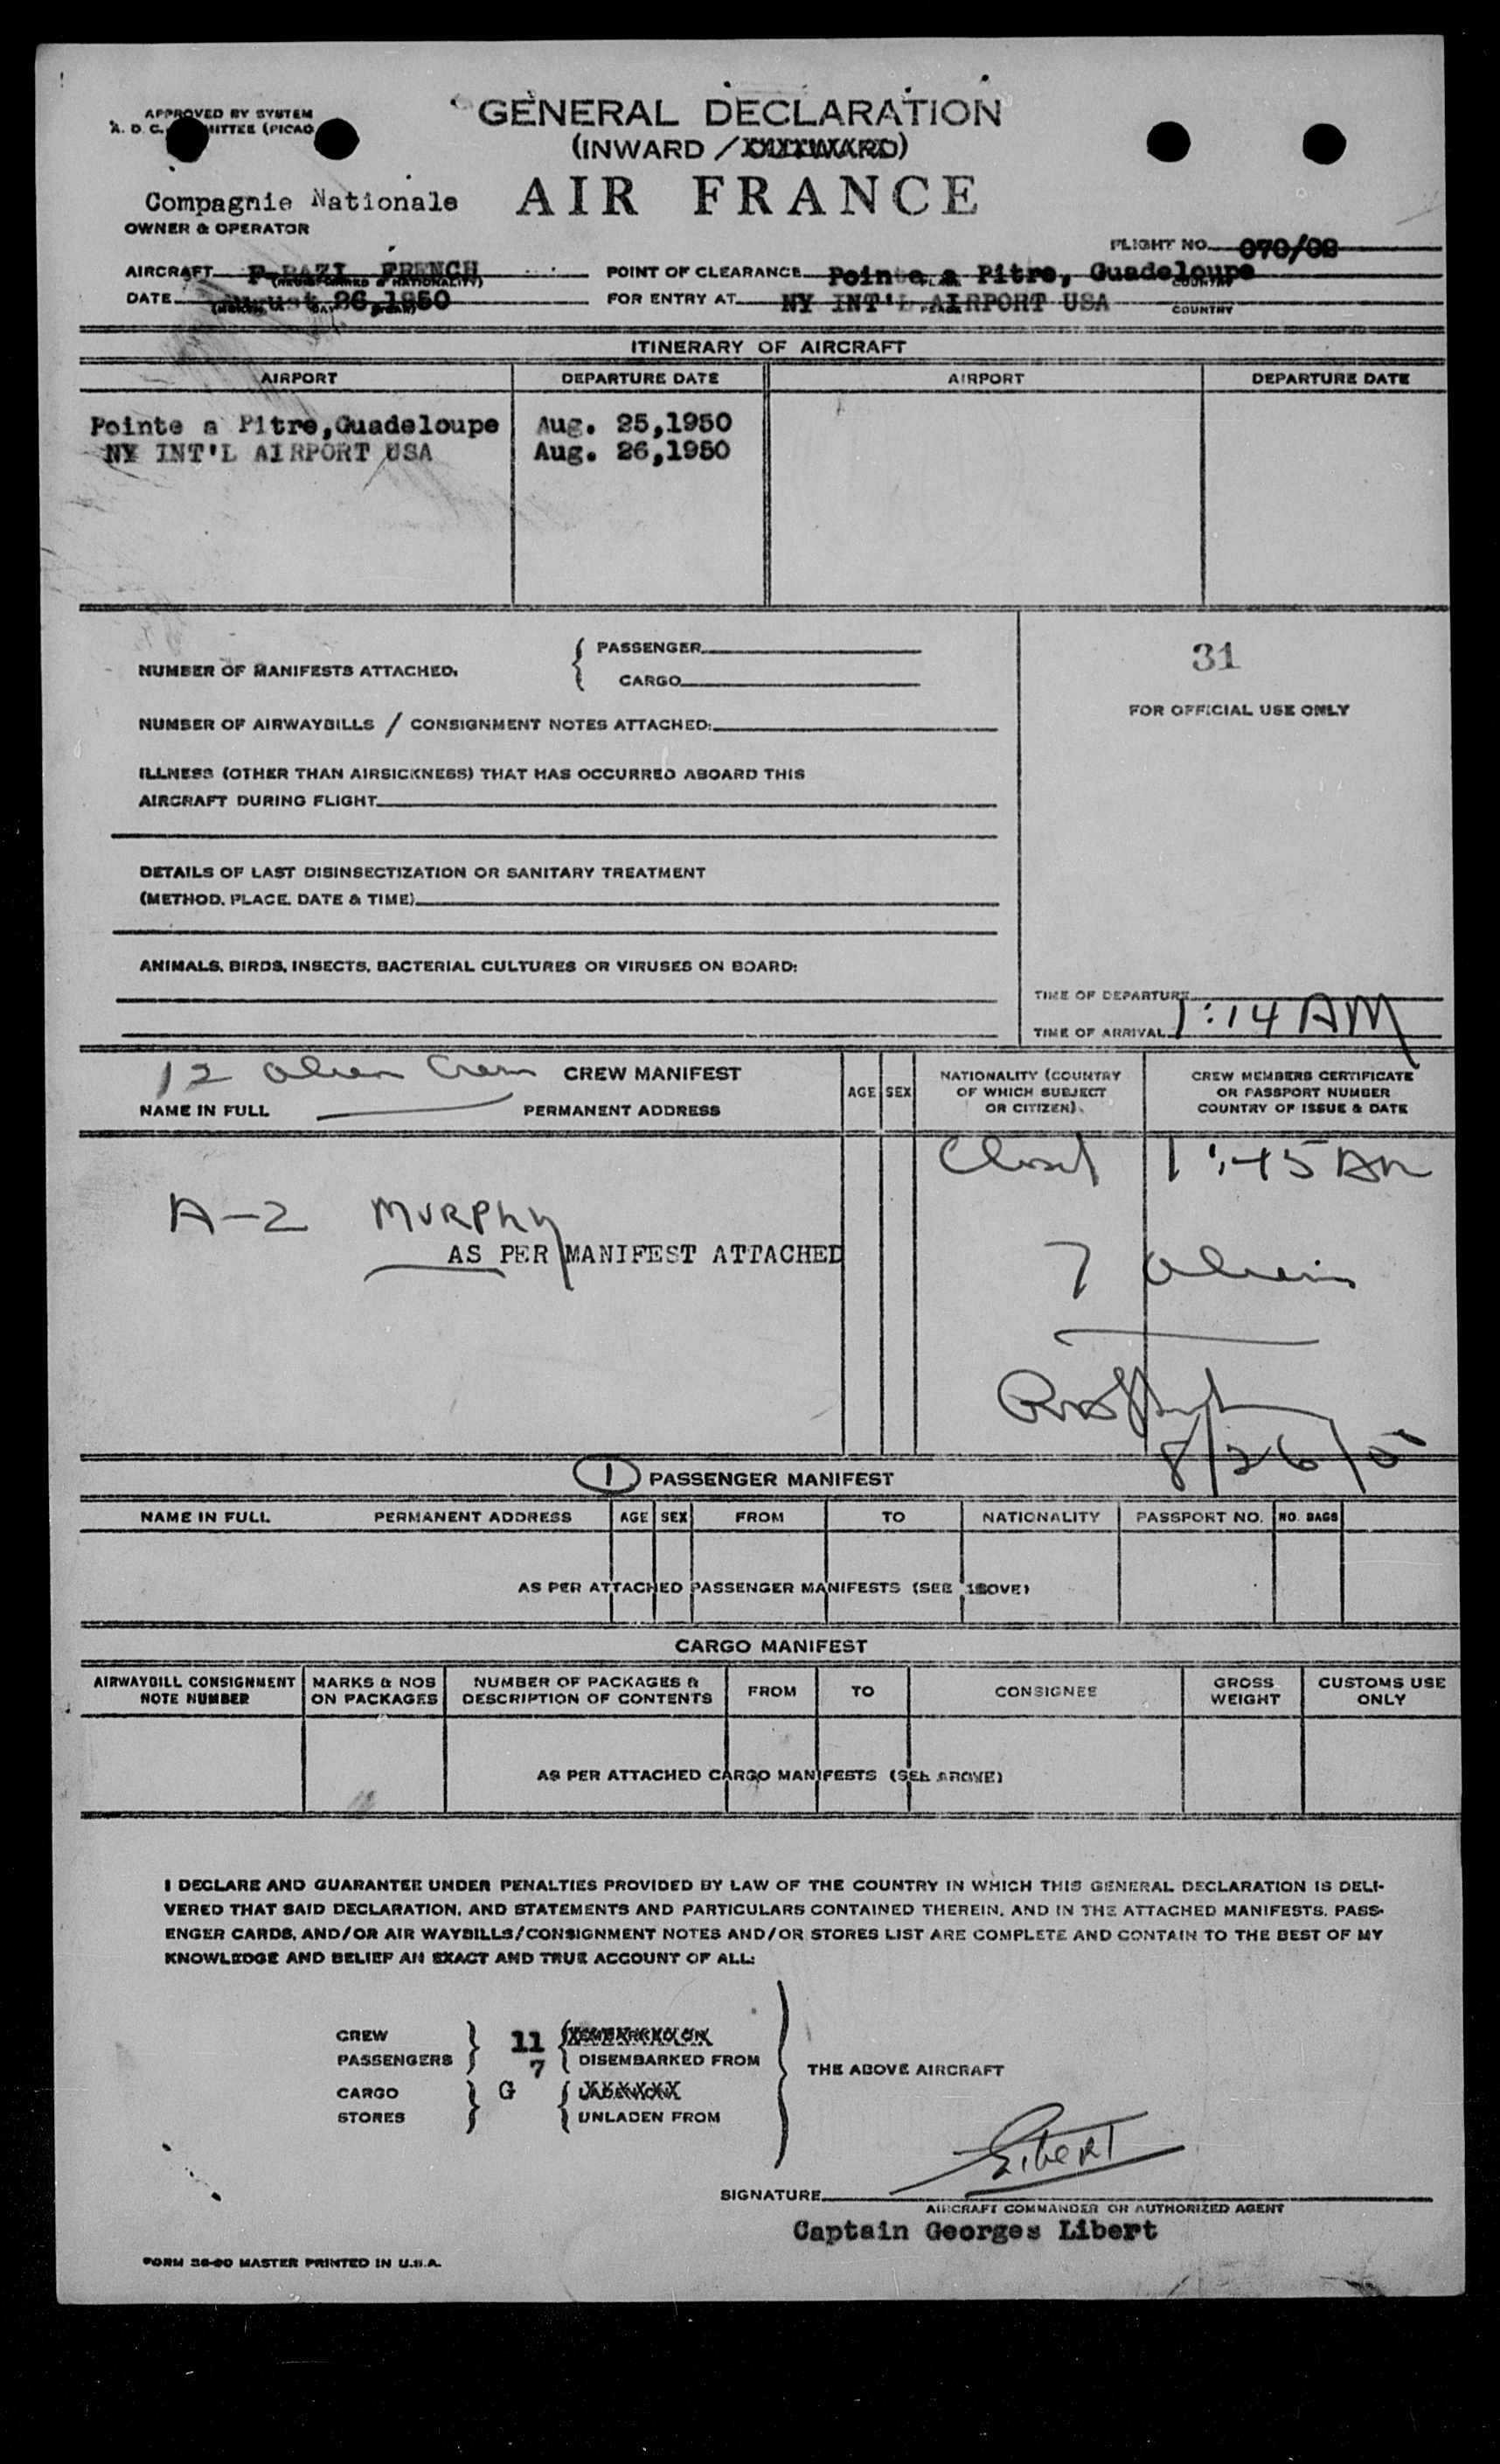 APPROVED BY SYSTEM
GENERAL DECLARATION
A. D. C. (PICAO
(INWARD /
Compagnie Nationale AIR FRANCE
OWNER & OPERATOR
FLIGHT NO. 070/08
AIRCRAFT FRENCH POINT OF CLEARANCE Pointe a Pitre, Guadeloupe
(REGISTERED & NATIONALITY) PLACE COUNTRY
DATE August 26,1950 FOR ENTRY AT NY INT'L AIRPORT USA
(MONTH, DAY, YEAR) PLACE COUNTRY
ITINERARY OF AIRCRAFT
AIRPORT DEPARTURE DATE AIRPORT DEPARTURE DATE
Pointe a Pitre,Guadeloupe Aug. 25,1950
NY INT'L AIRPORT USA Aug. 26,1950
PASSENGER
31
NUMBER OF MANIFESTS ATTACHED.
CARGO
FOR OFFICIAL USE ONLY
NUMBER OF AIRWAYBILLS / CONSIGNMENT NOTES ATTACHED:
ILLNESS (OTHER THAN AIRSICKNESS) THAT HAS OCCURRED ABOARD THIS
AIRCRAFT DURING FLIGHT
DETAILS OF LAST DISINSECTIZATION OR SANITARY TREATMENT
(METHOD, PLACE, DATE & TIME)
ANIMALS, BIRDS, INSECTS, BACTERIAL CULTURES OR VIRUSES ON BOARD:
TIME OF DEPARTURE
TIME OF ARRIVAL 1:14 AM
12 alien Crew CREW MANIFEST
NAME IN FULL PERMANENT ADDRESS
AGE SEX
NATIONALITY (COUNTRY
OF WHICH SUBJECT
OR CITIZEN)
CREW MEMBERS CERTIFICATE
OR PASSPORT NUMBER
COUNTRY OF ISSUE & DATE
Closed 1:45 AM
A-2 MURPHY
AS PER MANIFEST ATTACHED
7 aliens
8/26/50
1 PASSENGER MANIFEST
NAME IN FULL PERMANENT ADDRESS AGE SEX FROM TO NATIONALITY PASSPORT NO. NO. BAGS
AS PER ATTACHED PASSENGER MANIFESTS (SEE ABOVE)
CARGO MANIFEST
AIRWAYBILL CONSIGNMENT
NOTE NUMBER
MARKS & NOS
ON PACKAGES
NUMBER OF PACKAGES &
DESCRIPTION OF CONTENTS
FROM TO CONSIGNEE
GROSS
WEIGHT
CUSTOMS USE
ONLY
AS PER ATTACHED CARGO MANIFESTS (SEE ABOVE)
I DECLARE AND GUARANTEE UNDER PENALTIES PROVIDED BY LAW OF THE COUNTRY IN WHICH THIS GENERAL DECLARATION IS DELI-
VERED THAT SAID DECLARATION, AND STATEMENTS AND PARTICULARS CONTAINED THEREIN, AND IN THE ATTACHED MANIFESTS, PASS-
ENGER CARDS, AND/OR AIR WAYBILLS/CONSIGNMENT NOTES AND/OR STORES LIST ARE COMPLETE AND CONTAIN TO THE BEST OF MY
KNOWLEDGE AND BELIEF AN EXACT AND TRUE ACCOUNT OF ALL:
CREW 11
PASSENGERS 7 DISEMBARKED FROM
THE ABOVE AIRCRAFT
CARGO G
STORES UNLADEN FROM
Libert
SIGNATURE
AIRCRAFT COMMANDER OR AUTHORIZED AGENT
Captain Georges Libert
FORM 36-90 MASTER PRINTED IN U.S.A.